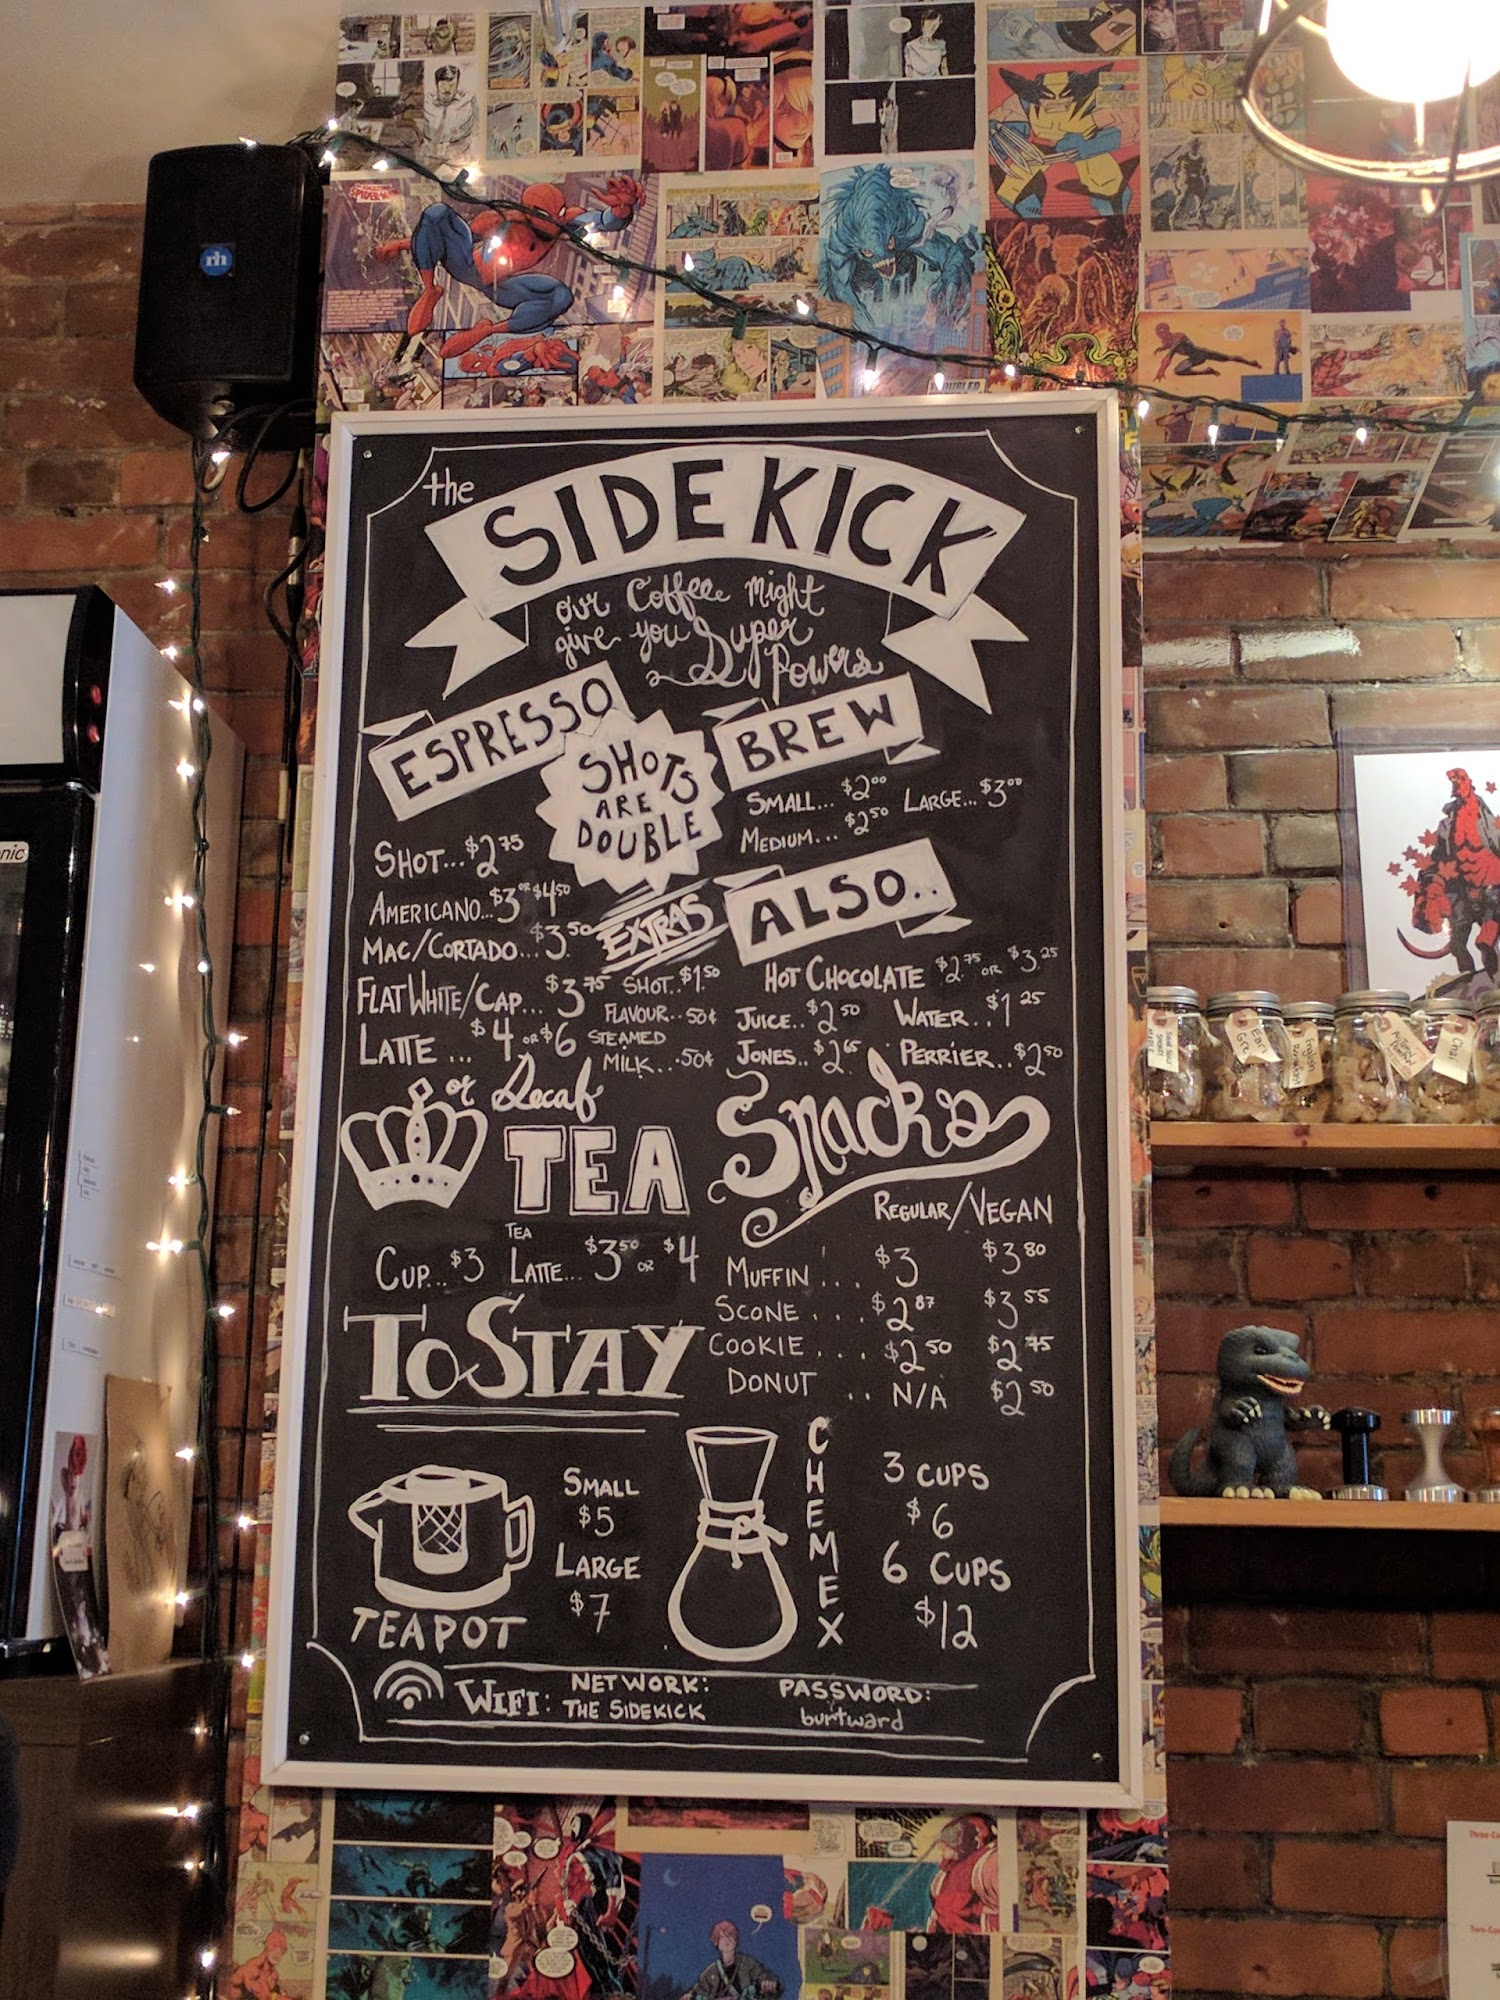 the
SIDEKICK
our Coffee Might
give you Super
Powers
ESPRESSO
SHOTS
ARE
DOUBLE
SHOT...$2.75
AMERICANO...$3 OR $4.50
MAC/CORTADO...$3.50
FLAT WHITE/CAP...$3.75
LATTE ... $4 OR $6
or Decaf
EXTRAS
SHOT..$1.50
FLAVOUR..50¢
STEAMED
MILK...50¢
BREW
SMALL...$2.00 LARGE...$3.00
MEDIUM...$2.50
ALSO..
HOT CHOCOLATE $2.75 OR $3.25
JUICE..$2.50 WATER..$1.25
JONES..$2.65 PERRIER..$2.50
TEA
CUP...$3 TEA LATTE...$3.50 OR $4
Snacks
REGULAR/VEGAN
MUFFIN ... $3 $3.80
SCONE .... $2.87 $3.55
COOKIE .... $2.50 $2.75
DONUT .. N/A $2.50
TO STAY
TEAPOT
SMALL
$5
LARGE
$7
CHEMEX
3 CUPS
$6
6 CUPS
$12
WIFI: NETWORK: THE SIDEKICK
PASSWORD: burtward
rh
nic
SPIDER-MAN
Earl Grey